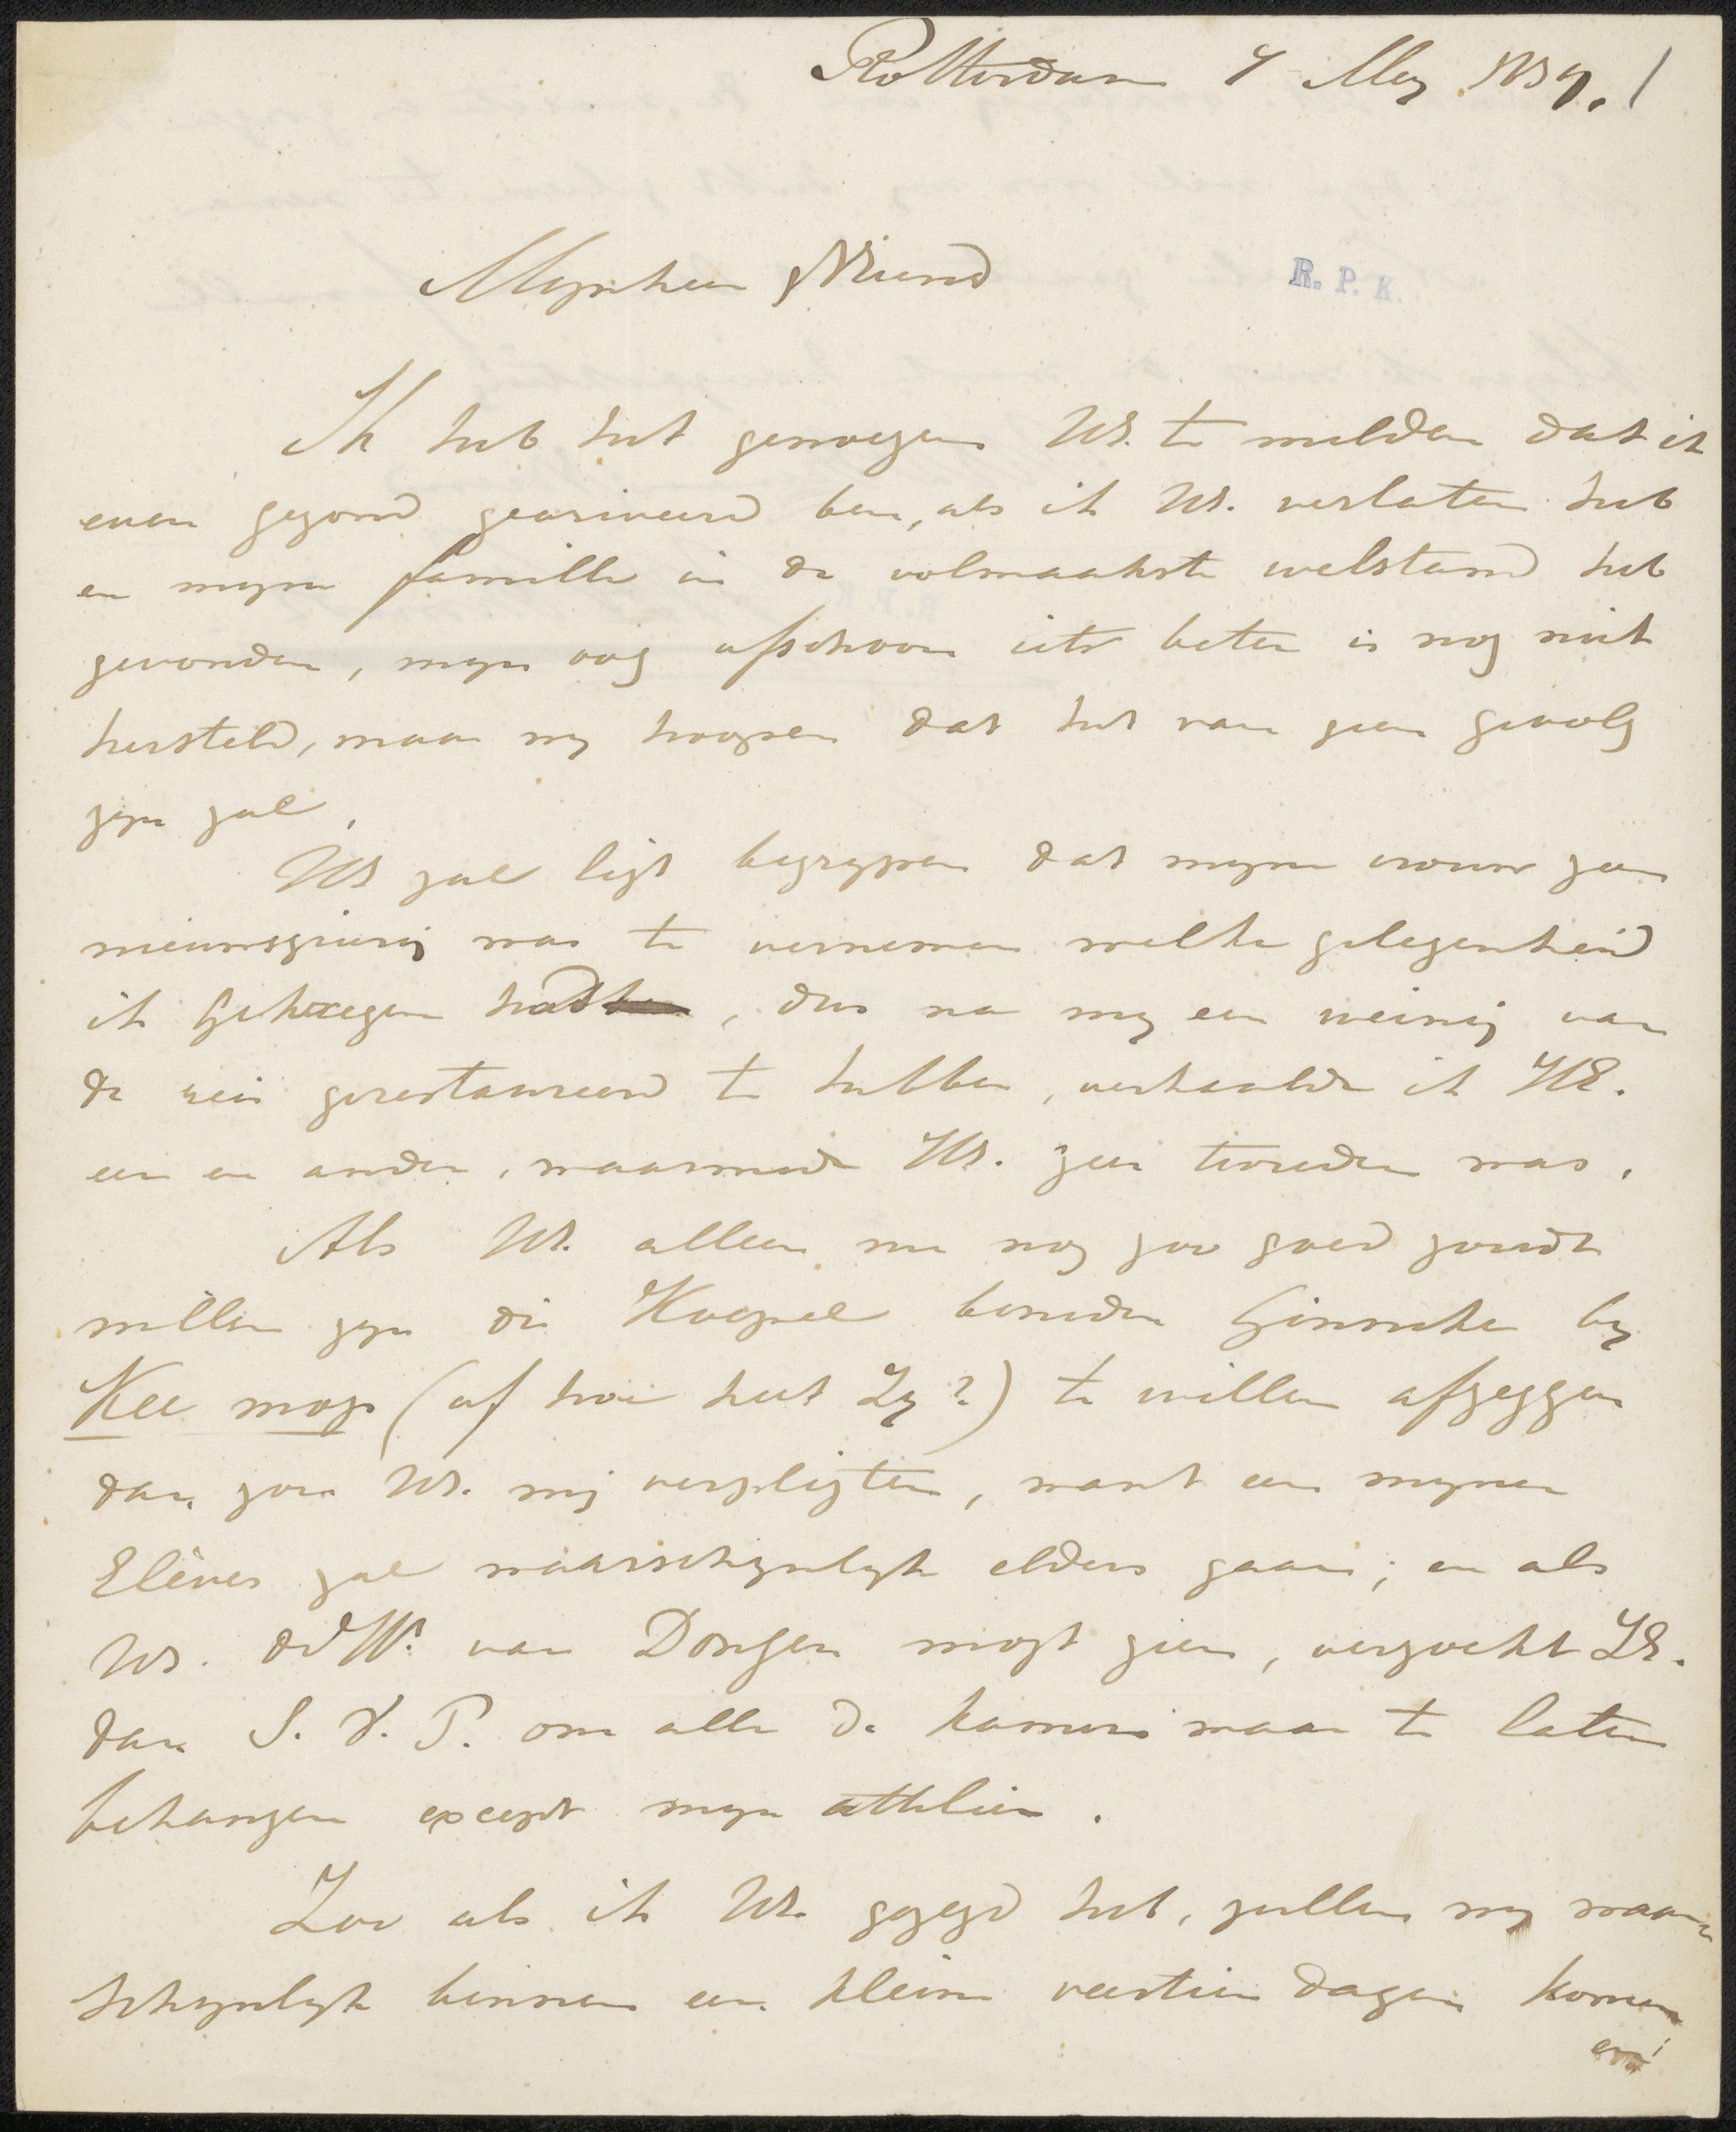 Rotterdam 7 Mey 1839. /
Mynheer & Vriend
R. P. K.
Ik heb het genoegen UE. te melden dat ik
even gezond gearriveerd ben, als ik UE. verlaten heb
en myne famille in de volmaakste welstand heb
gevonden, myn oog ofschoon iets beter is nog niet
hersteld, maar wy hoopen dat het van geen gevolg
zyn zal.
UE zal ligt begrypen dat myne vrouw zeer
nieuwsgierig was te vernemen welke gelegenheid
ik gekreegen had, dus na my een weinig van
de reis gerestaureerd te hebben, verhaalde ik HE.
een en ander, waarmede HE. zeer tevreden was.
Als UE. alleen nu nog zoo goed zoudt
willen zyn die Koepel beneden Ginneke by
Kee mop (of hoe heet Zy?) te willen afzeggen
dan zou UE. mij verpligten, want een myner
Elèves zal waarschynlyk elders gaan; en als
UE. de Wd. van Dongen mogt zien, verzoekt ZE.
dan S. V. P. om alle de kamers maar te laten
behangen except myn atthelier.
Zoo als ik UE. gezegd heb, zullen wy waar-
schynlyk binnen een kleine veertien dagen komen
en